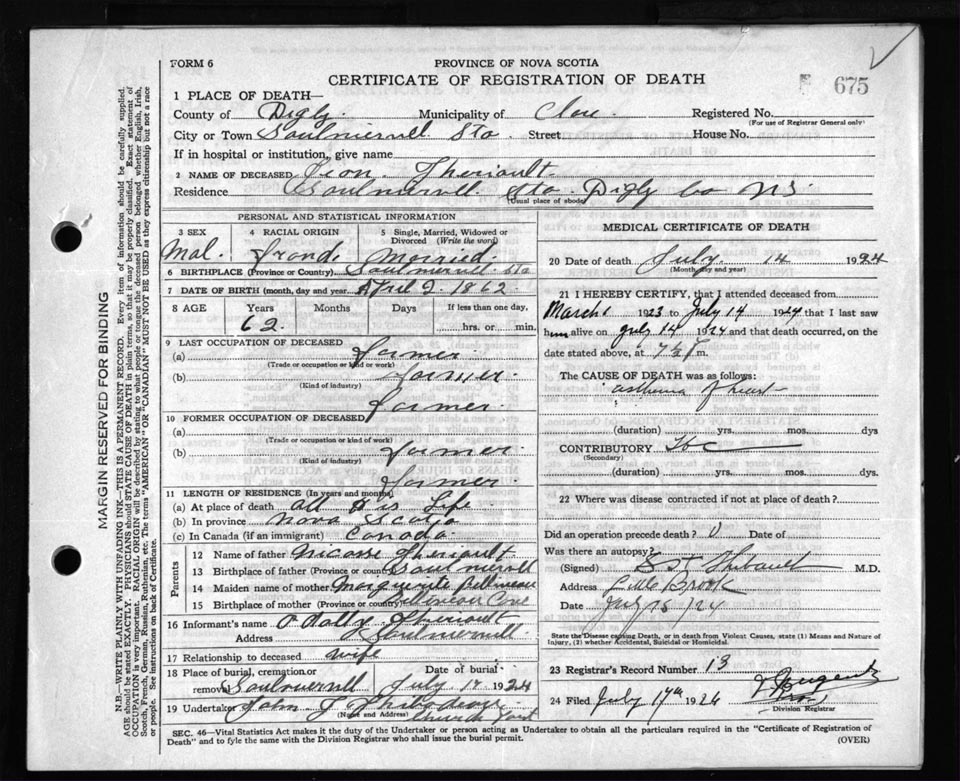 FORM 6
PROVINCE OF NOVA SCOTIA
CERTIFICATE OF REGISTRATION OF DEATH
F 675
1 PLACE OF DEATH—
County of Digby Municipality of Clare Registered No.
(For use of Registrar General only)
City or Town Saulnierville Sta Street House No.
If in hospital or institution, give name
2 NAME OF DECEASED Leon Theriault
Residence Sta Digby Co NS
(Usual place of abode)
PERSONAL AND STATISTICAL INFORMATION
3 SEX 4 RACIAL ORIGIN 5 Single, Married, Widowed or Divorced (Write the word)
Mal. Married.
6 BIRTHPLACE (Province or Country) Sta
7 DATE OF BIRTH (month, day and year) April 2. 1862
8 AGE Years Months Days If less than one day,
62. hrs. or min.
9 LAST OCCUPATION OF DECEASED
(a) farmer
(Trade or occupation or kind or work)
(b) farmer
(Kind of industry)
farmer
10 FORMER OCCUPATION OF DECEASED
(a)
(Trade or occupation or kind of work)
(b) farmer
(Kind of industry)
farmer
11 LENGTH OF RESIDENCE (In years and months)
(a) At place of death all his Life
(b) In province Nova Scotia
(c) In Canada (if an immigrant) Canada
Parents
12 Name of father Theriault
13 Birthplace of father (Province or country)
14 Maiden name of mother Marguerite Belliveau
15 Birthplace of mother (Province or country) Cove
16 Informant's name Theriault
Address
17 Relationship to deceased wife
18 Place of burial, cremation or removal Date of burial
July 17 1924
19 Undertaker John Thibodeau
(Name and Address) Church Point
MEDICAL CERTIFICATE OF DEATH
20 Date of death July 14 1924
(Month, day and year)
21 I HEREBY CERTIFY, that I attended deceased from
March 1 1923 to July 14 1924 that I last saw
him alive on July 14 1924 and that death occurred, on the
date stated above, at 7½ P m.
The CAUSE OF DEATH was as follows:
asthenia of heart
(duration) yrs. mos. dys
CONTRIBUTORY Tbc
(Secondary)
(duration) yrs. mos. dys.
22 Where was disease contracted if not at place of death?
Did an operation precede death? 0 Date of
Was there an autopsy?
(Signed) Thibault M.D.
Address Little Brook
Date July 15 / 24
State the Disease causing Death, or in death from Violent Causes, state (1) Means and Nature of
Injury, (2) whether Accidental, Suicidal or Homicidal.
23 Registrar's Record Number 13
24 Filed July 17th 1924
Division Registrar
SEC. 46—Vital Statistics Act makes it the duty of the Undertaker or person acting as Undertaker to obtain all the particulars required in the "Certificate of Registration of
Death" and to fyle the same with the Division Registrar who shall issue the burial permit. (OVER)
MARGIN RESERVED FOR BINDING
N.B.—WRITE PLAINLY WITH UNFADING INK.—THIS IS A PERMANENT RECORD. Every item of information should be carefully supplied.
AGE should be stated EXACTLY. PHYSICIANS should STATE CAUSE OF DEATH in plain terms, so that it may be properly classified. Exact statement of
OCCUPATION is very important. RACIAL ORIGIN will be described by stating to what people or tongue the deceased person belonged, whether English, Irish,
Scotch, French, German, Russian, Ruthenian, etc. The terms "AMERICAN" OR "CANADIAN" MUST NOT BE USED as they express citizenship but not a race
or people. See instructions on back of Certificate.